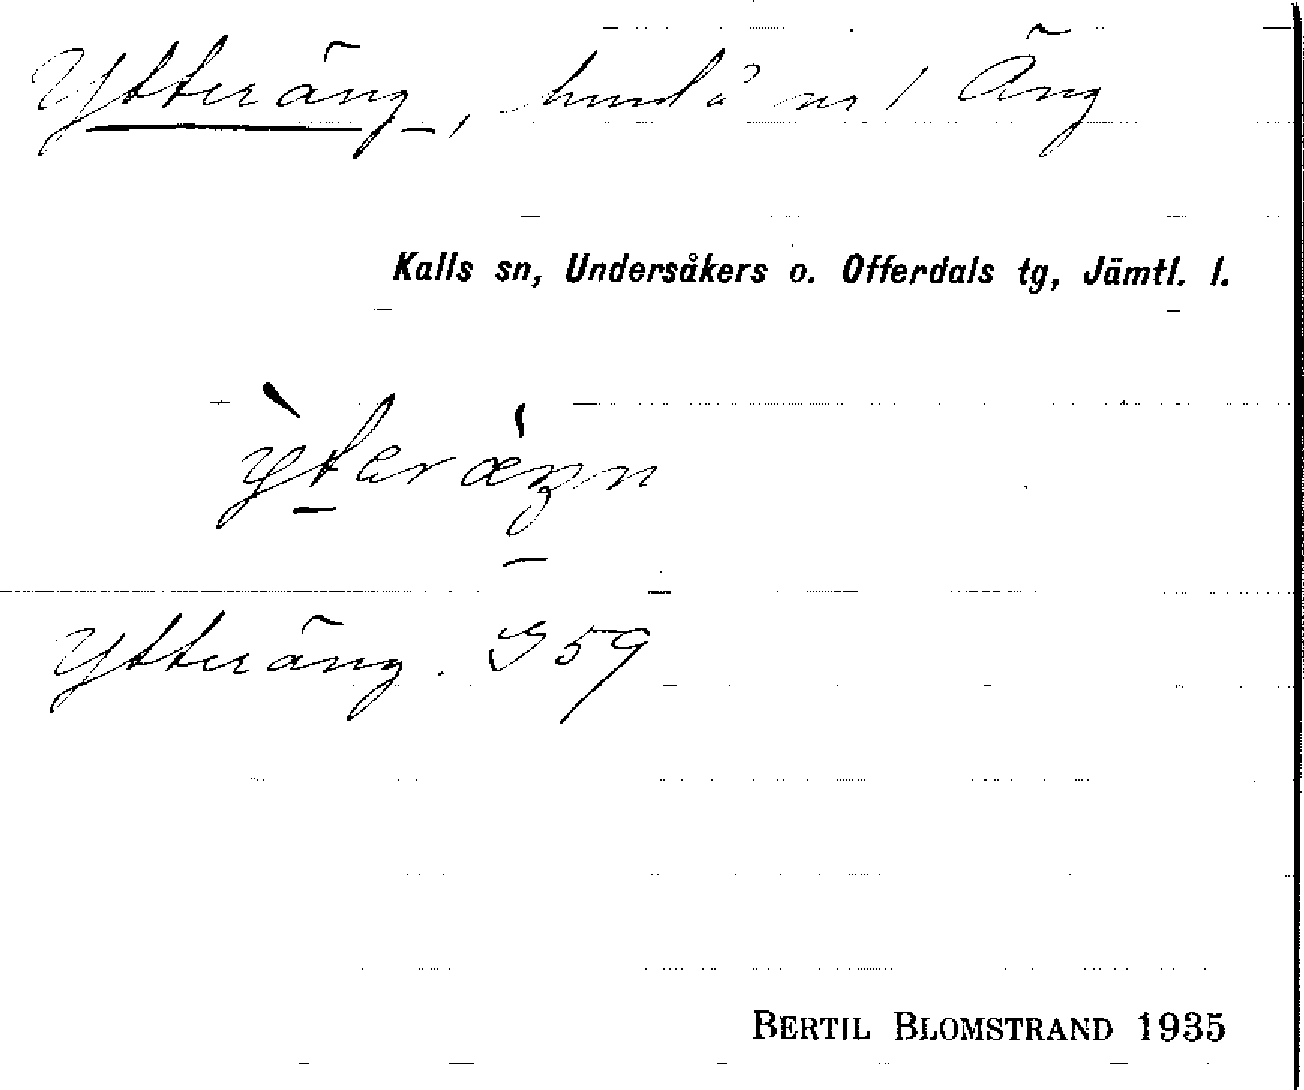 Ytteräng, hmd å nr 1 Äng
Kalls sn, Undersåkers o. Offerdals tg, Jämtl. l.
Ytteräng. S 59
BERTIL BLOMSTRAND 1935